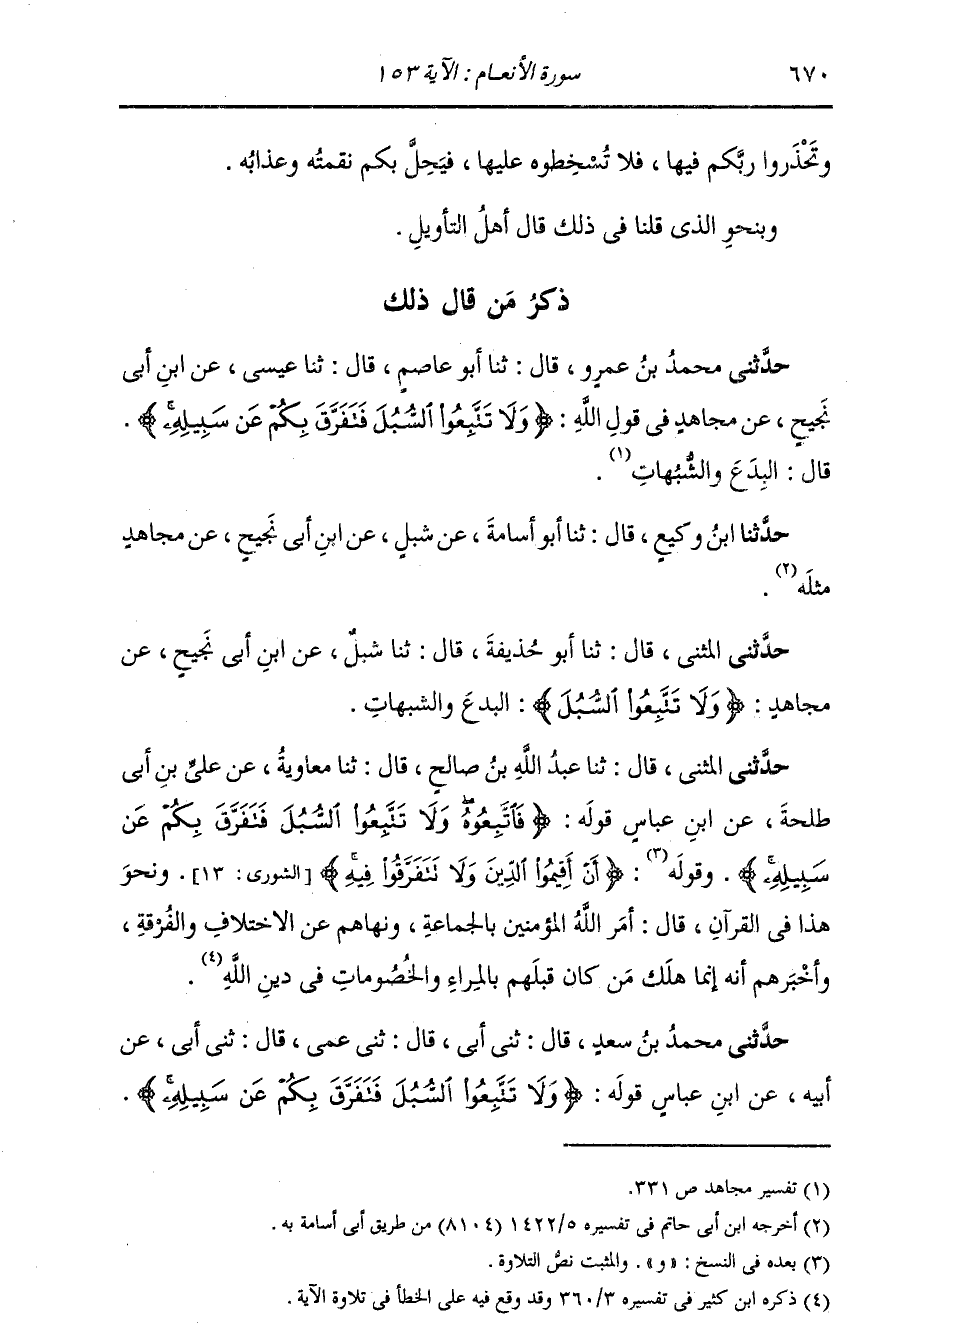 ٦٧٠ سورة الأنعام : الآية ١٥٣
وتَحْذَروا ربَّكم فيها ، فلا تُسْخِطوه عليها ، فيَحِلَّ بكم نقمتُه وعذابُه .
وبنحوِ الذى قلنا فى ذلك قال أهلُ التأويلِ .
ذكرُ مَن قال ذلك
حدَّثنى محمدُ بنُ عمرٍو ، قال : ثنا أبو عاصمٍ ، قال : ثنا عيسى ، عن ابنِ أبى
نَجيحٍ ، عن مجاهدٍ فى قولِ اللَّهِ : ﴿ وَلَا تَتَّبِعُوا۟ ٱلسُّبُلَ فَتَفَرَّقَ بِكُمْ عَن سَبِيلِهِۦ ﴾ .
قال : البِدَعَ والشُّبُهاتِ (١) .
حدَّثنا ابنُ وكيعٍ ، قال : ثنا أبو أسامةَ ، عن شبلٍ ، عن ابنِ أبى نَجيحٍ ، عن مجاهدٍ
مثلَه (٢) .
حدَّثنى المثنى ، قال : ثنا أبو حُذيفةَ ، قال : ثنا شبلٌ ، عن ابنِ أبى نَجيحٍ ، عن
مجاهدٍ : ﴿ وَلَا تَتَّبِعُوا۟ ٱلسُّبُلَ ﴾ : البدعَ والشبهاتِ .
حدَّثنى المثنى ، قال : ثنا عبدُ اللَّهِ بنُ صالحٍ ، قال : ثنا معاويةُ ، عن علىِّ بنِ أبى
طلحةَ ، عن ابنِ عباسٍ قولَه : ﴿ فَٱتَّبِعُوهُۖ وَلَا تَتَّبِعُوا۟ ٱلسُّبُلَ فَتَفَرَّقَ بِكُمْ عَن
سَبِيلِهِۦۚ ﴾ . وقولَه (٣) : ﴿ أَنْ أَقِيمُوا۟ ٱلدِّينَ وَلَا تَتَفَرَّقُوا۟ فِيهِۚ ﴾ [الشورى : ١٣] . ونحوَ
هذا فى القرآنِ ، قال : أمَر اللَّهُ المؤمنين بالجماعةِ ، ونهاهم عن الاختلافِ والفُرْقةِ ،
وأخْبَرهم أنه إنما هلَك مَن كان قبلَهم بالمِراءِ والخُصُوماتِ فى دينِ اللَّهِ (٤) .
حدَّثنى محمدُ بنُ سعدٍ ، قال : ثنى أبى ، قال : ثنى عمى ، قال : ثنى أبى ، عن
أبيه ، عن ابنِ عباسٍ قولَه : ﴿ وَلَا تَتَّبِعُوا۟ ٱلسُّبُلَ فَتَفَرَّقَ بِكُمْ عَن سَبِيلِهِۦۚ ﴾ .
(١) تفسير مجاهد ص ٣٣١.
(٢) أخرجه ابن أبى حاتم فى تفسيره ١٤٢٢/٥ (٨١٠٤) من طريق أبى أسامة به .
(٣) بعده فى النسخ : « و » . والمثبت نصُّ التلاوة .
(٤) ذكره ابن كثير فى تفسيره ٣٦٠/٣ وقد وقع فيه على الخطأ فى تلاوة الآية .